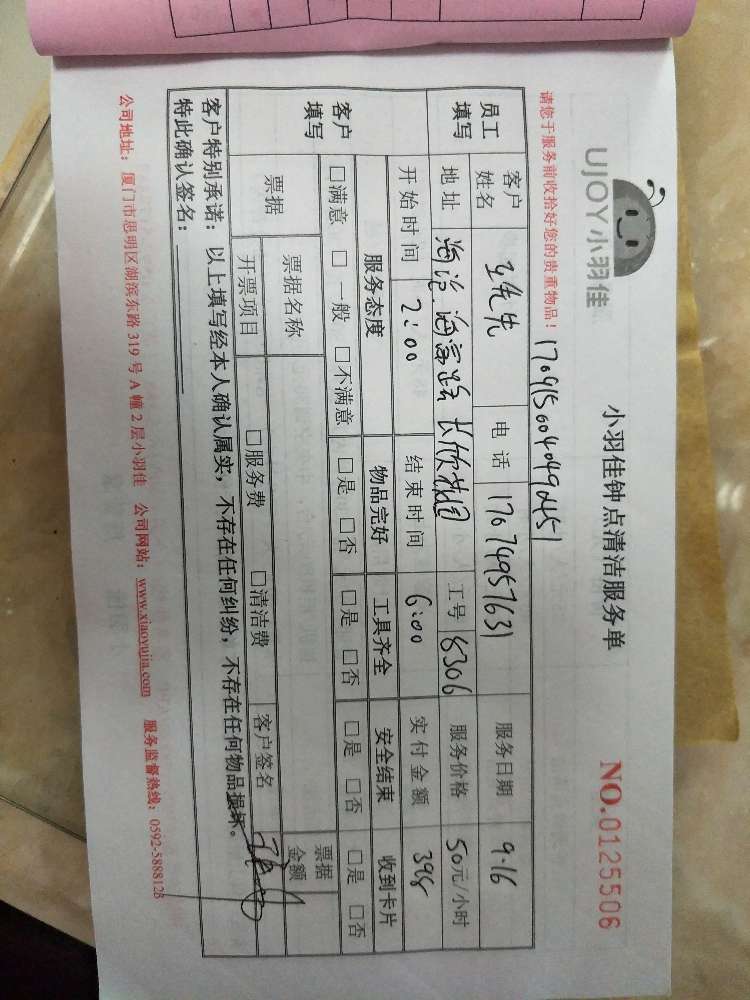 UJOY小羽佳
小羽佳钟点清洁服务单
NO.0125506
请您于服务前收拾好您的贵重物品！
员工填写 客户姓名 王先生 电话 17074957631 服务日期 9.16
地址 海沧 海富路 长欣花园 工号 8306 服务价格 50元/小时
开始时间 2:00 结束时间 6:00 实付金额 398
客户填写 服务态度 物品完好 工具齐全 安全结束 收到卡片
□满意 □一般 □不满意 □是 □否 □是 □否 □是 □否 □是 □否
票据 票据名称 票据金额
开票项目 □服务费 □清洁费 客户签名
客户特别承诺：以上填写经本人确认属实，不存在任何纠纷，不存在任何物品损坏。
特此确认签名：
公司地址：厦门市思明区湖滨东路 319 号 A 幢 2 层小羽佳 公司网站：www.xiaoyujia.com 服务监督热线：0592-5888128